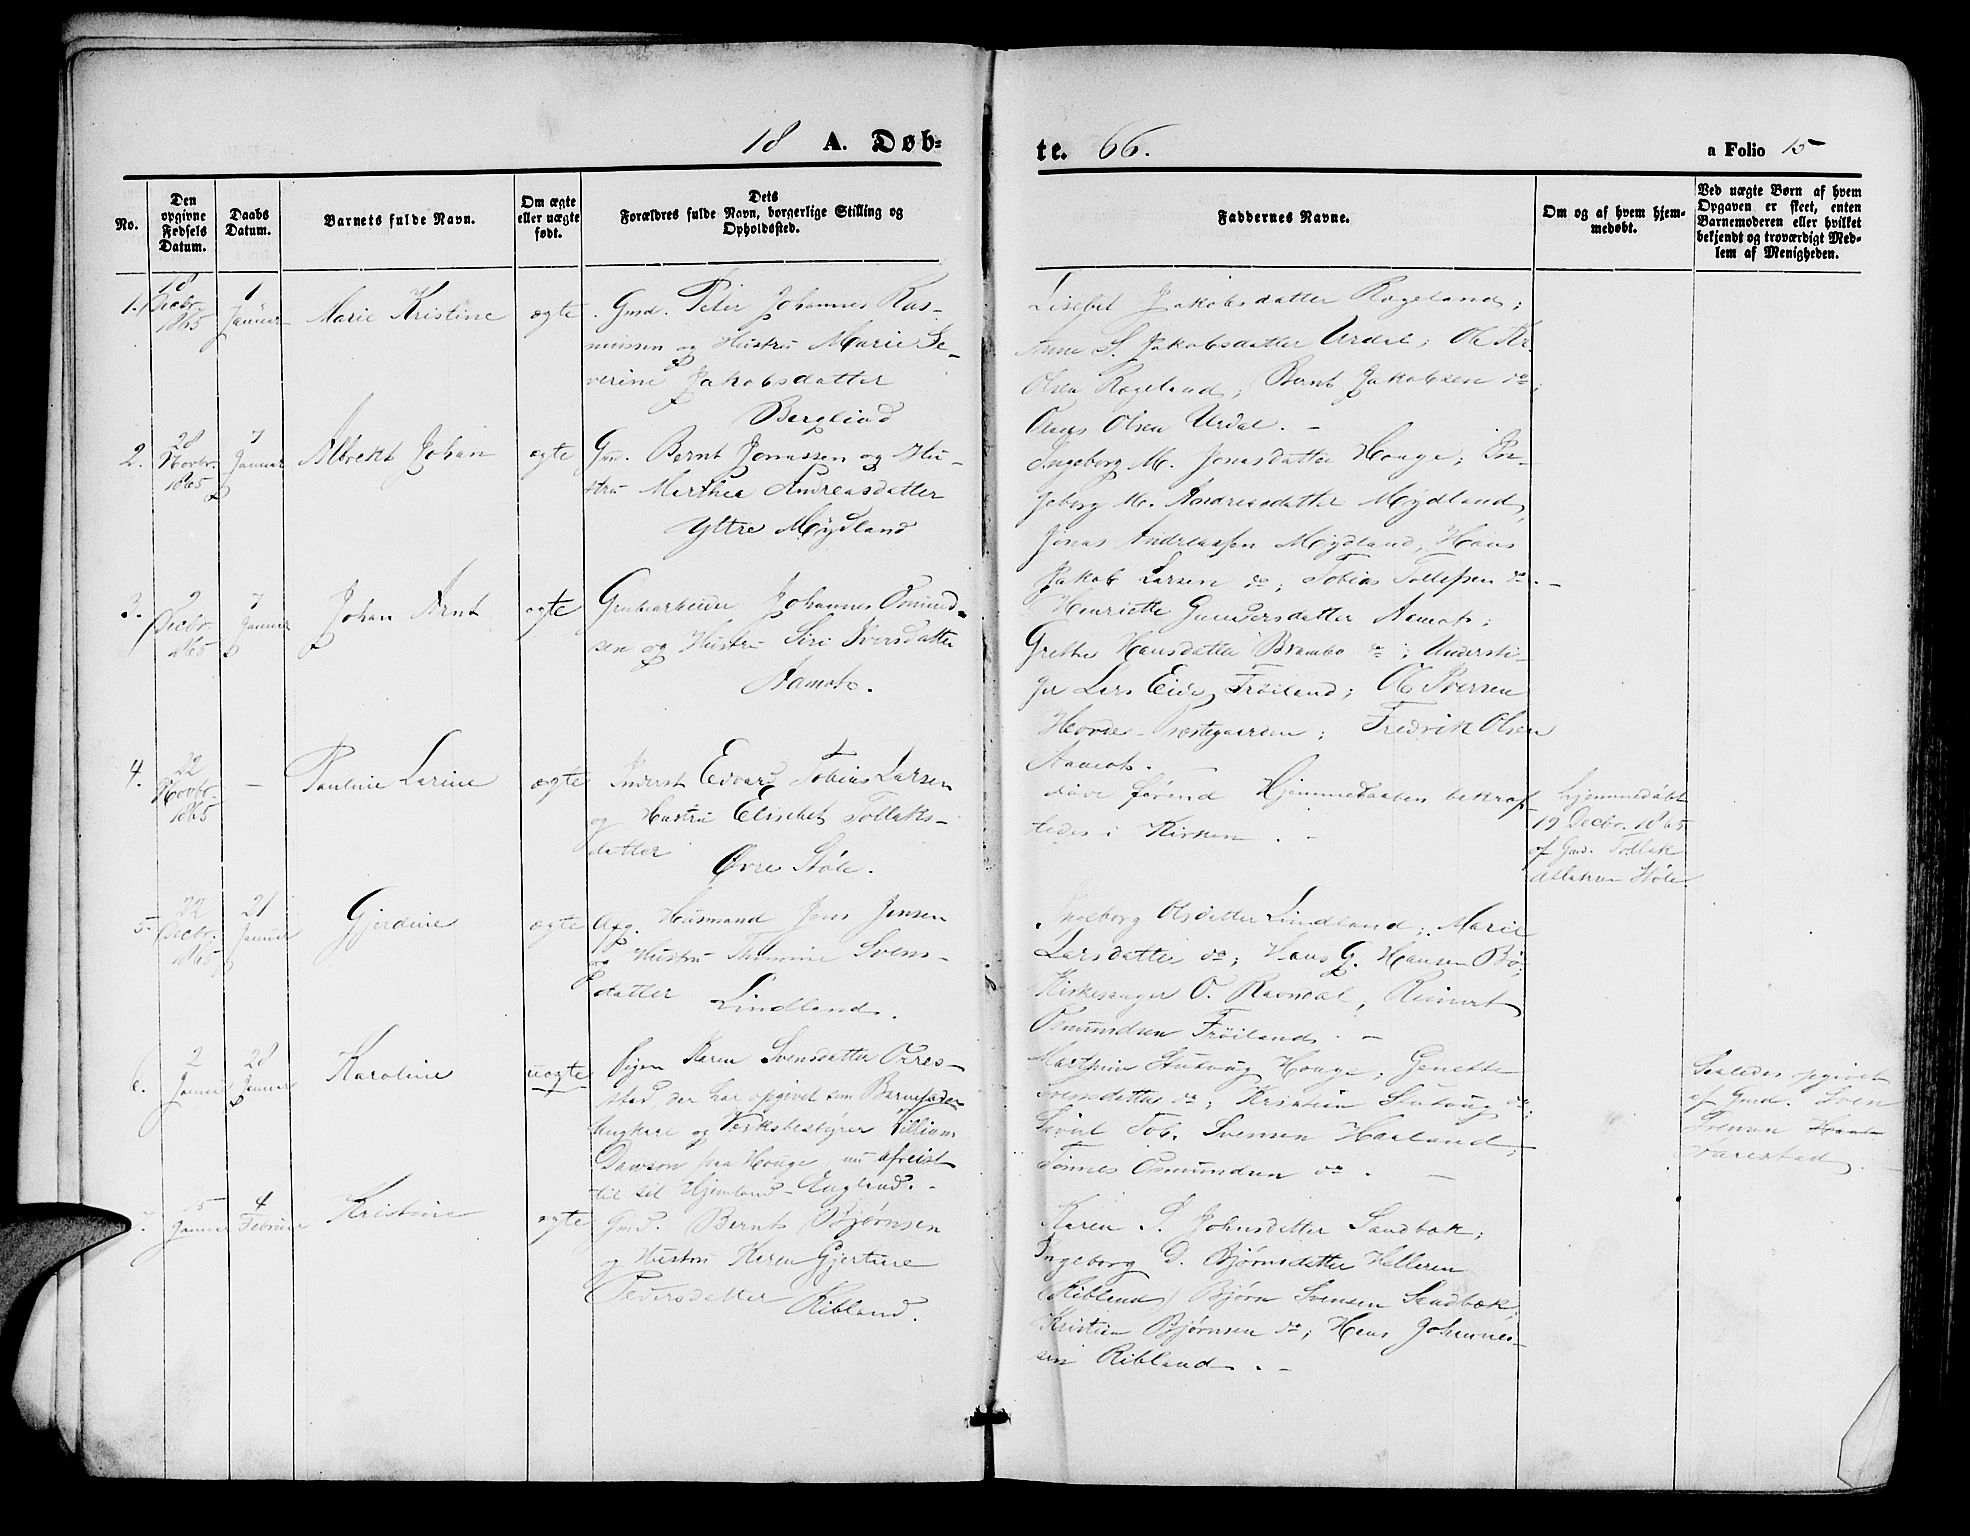 18 A. Døb-
te. 66.
a Folio 15
No.
Den
opgivne
Fødsels
Datum.
Daabs
Datum.
Barnets fulde Navn.
Om ægte
eller uægte
født.
Dets
Forældres fulde Navn, borgerlige Stilling og
Opholdssted.
Faddernes Navne.
Om og af hvem hjem-
medøbt.
Ved uægte Børn af hvem
Opgaven er skeet, enten
Barnemoderen eller hvilket
bekjendt og troværdigt Med-
lem af Menigheden.
1.
18
Decbr.
1865
1
Januar
Marie Kristine
ægte
Gmd. Peter Johannes Ras-
mussen og Hustru Marie Se-
verine Jakobsdatter
Bergliud
Lisebet Jakobsdatter Rogeland;
Anne S. Jakobsdatter Urdal; Ole Kr.
Olsen Rogeland; Bernt Jakobsen do;
Olaus Olsen Urdal. -
2.
28
Novbr.
1865
7
Januar
Albrekt Johan
ægte
Gmd. Bernt Jonassen og Hu-
stru Marthea Andreasdatter
Yttre Mydland
Ingeborg M. Jonasdatter Houge; In-
geborg M. Andreasdatter Mydland,
Jonas Andreassen Mydland, Hans
Jakob Larsen do; Tobias Tollefsen do. -
3.
2
Decbr
1865
7
Januar
Johan Arnt
ægte
Grubearbeider Johannes Omund-
sen og Hustru Siri Iversdatter
Aamot.
Henriette Gundersdatter Aamot;
Grethe Hansdatter Brambo do; Understi-
ger Lars Eide, Frøiland; Ole Iversen
Hovde Præstegaarden; Fredrik Olsen
Aamot. -
4.
22
Novbr.
1865
-
Pauline Larine
ægte
Inderst Edvard Tobias Larsen
og Hustru Elisebet Tollaks-
datter
Øvre Støle.
døve førend Hjemmedaaben bekræf-
tedes i Kirken. -
Hjemmedøbt
19 Decbr. 1865
af Gmd. Tollak
Støle.
5.
22
Decbr.
1865
21
Januar
Gjerdine
ægte
Afg. Husmand Jens Jensen
og Hustru Thomine Svens-
datter
Lindland.
Ingeborg Olsdatter Lindland; Marie
Larsdatter do; Hans G. Hansen Bø;
Kirkesanger O. Ravndal, Reinert
Osmundsen Frøiland. -
6.
2
Januar
28
Januar
Karoline
uægte
Pigen Karen Svensdatter Orres-
stad der har opgivet som Barnefader
Ungkarl og Værksbestyrer Villiam
Dawson fra Houge, nu afreist
til sit Hjemland - England. -
Marthin Stutvig Houge; Genette
Svensdatter do; Kristian Stutvig do;
Sivert Tob. Svensen Haaland;
Tønnes Osmundsen do. -
Saaledes opgivet
af Gmd. Sven
Svensen
7.
5
Januar
4
Februar
Kristine
ægte
Gmd. Bernt Bjørnsen
og Hustru Karen Gjertine
Pedersdatter
Ribland.
Karen S. Johnsdatter Sandbæk;
Ingeborg D. Bjørnsdatter Helleren
(Ribland) Bjørn Svensen Sandbæk,
Kristian Bjørnsen do; Hans Johannes-
sen Ribland. -